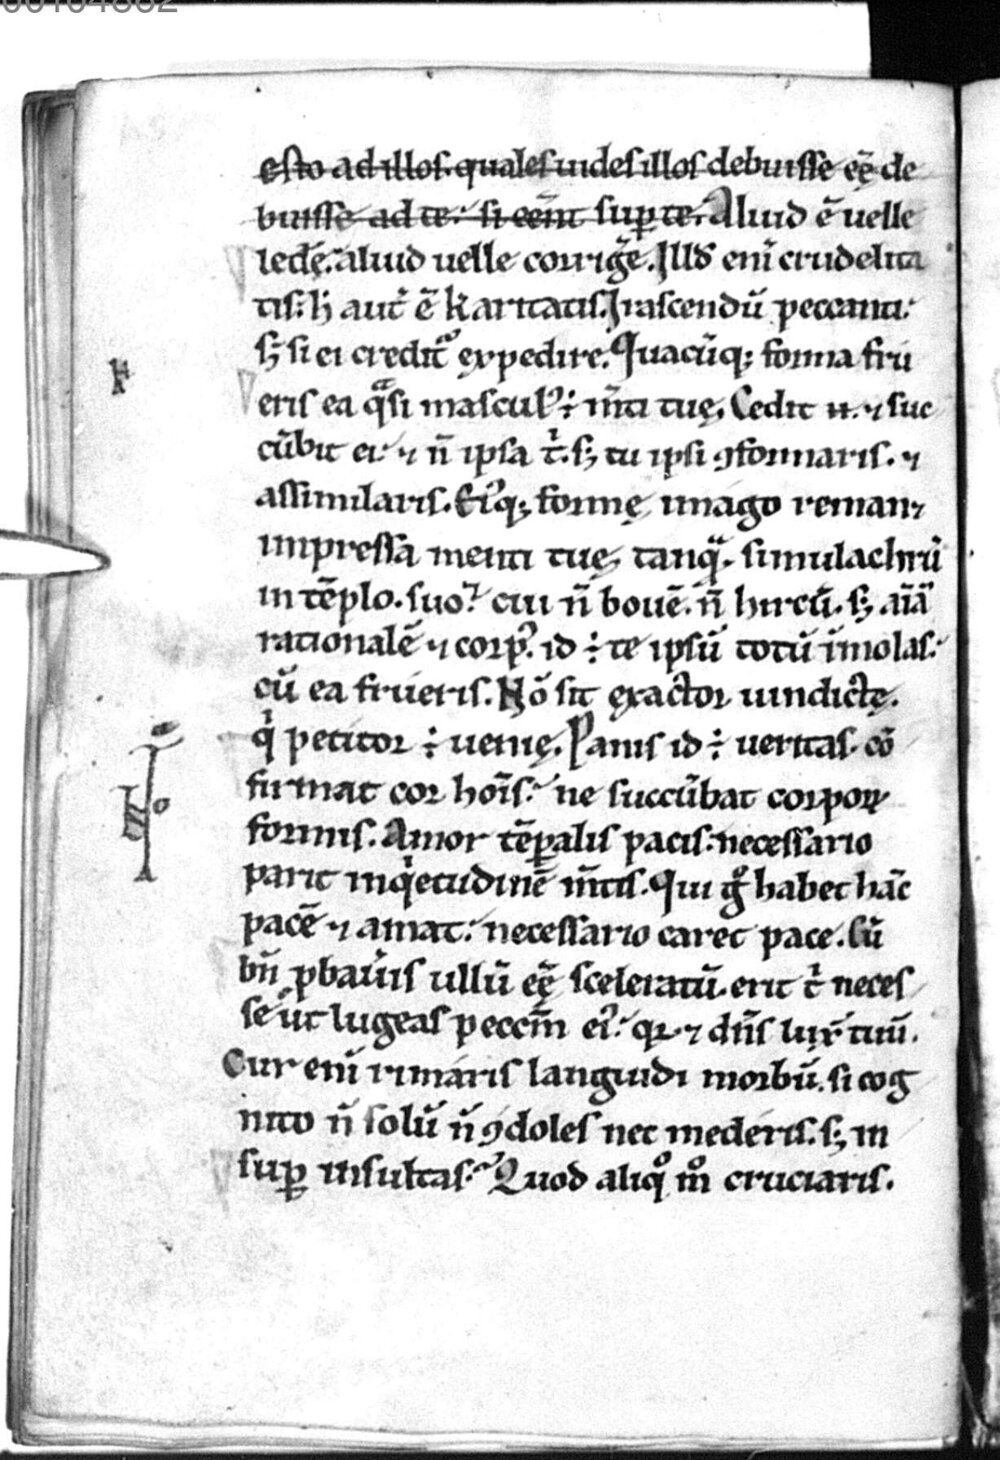 esto ad illos. quales uides illos debuisse eẽ de
buisse ad te. si eẽnt sup te. Aliud ẽ uelle
ledẽ. aliud uelle corrigẽ. Illđ eni̅ crudelita
tis: h̾ aut̾ ẽ karitatis. Irascendū peccanti.
sꝫ si ei credit᷒ expedire. Quacūqꝫ forma fru
eris ea qͣsi mascul᷒ ÷ m̅ti tuę. Cedit n̅. ⁊ suc
cūbit ei. ⁊ n̅ ipsa t̾. sꝫ tu ipsi ꝯformaris. ⁊
assimilaris. Ei᷒qꝫ formę imago remanꝫ
impressa menti tuę, tanqͣ. simulachrū
in tēplo. suo. cui n̅ bouē. n̅ hircū. sꝫ ai̅ā
rationalē ⁊ corp᷒. id ÷ te ipsū totū i̅molas.
cū ea frueris. Nō sit exactor uindictę.
qͥ petitor ÷ uenię. Panis id ÷ ueritas. cō
firmat cor hoi̅s. ne succūbat corporꝝ
formis. Amor tēꝑalis pacis. necessario
parit inqͥetudinē m̅tis. Qui gͦ habet hāc
pacē ⁊ amat. necessario caret pace. Cū
bn̅ ꝓbau̾is ullū eẽ sceleratū. erit t̾ neces
se ut lugeas peccm̅ ei᷒. qꝛ ⁊ dn̅s lux̾ tuū.
Cur eni̅ rimaris languidi morbū. si cog
nito n̅ solū n̅ ꝯdoles nec mederis. sꝫ in
suꝑ insultas. Quod aliqͦ mͦ cruciaris.